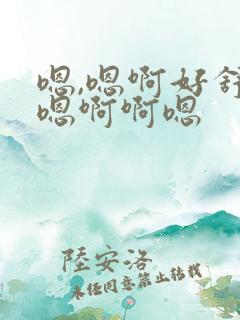 嗯,嗯啊好舒
嗯啊啊嗯
陸安洛
未经同意禁止转载